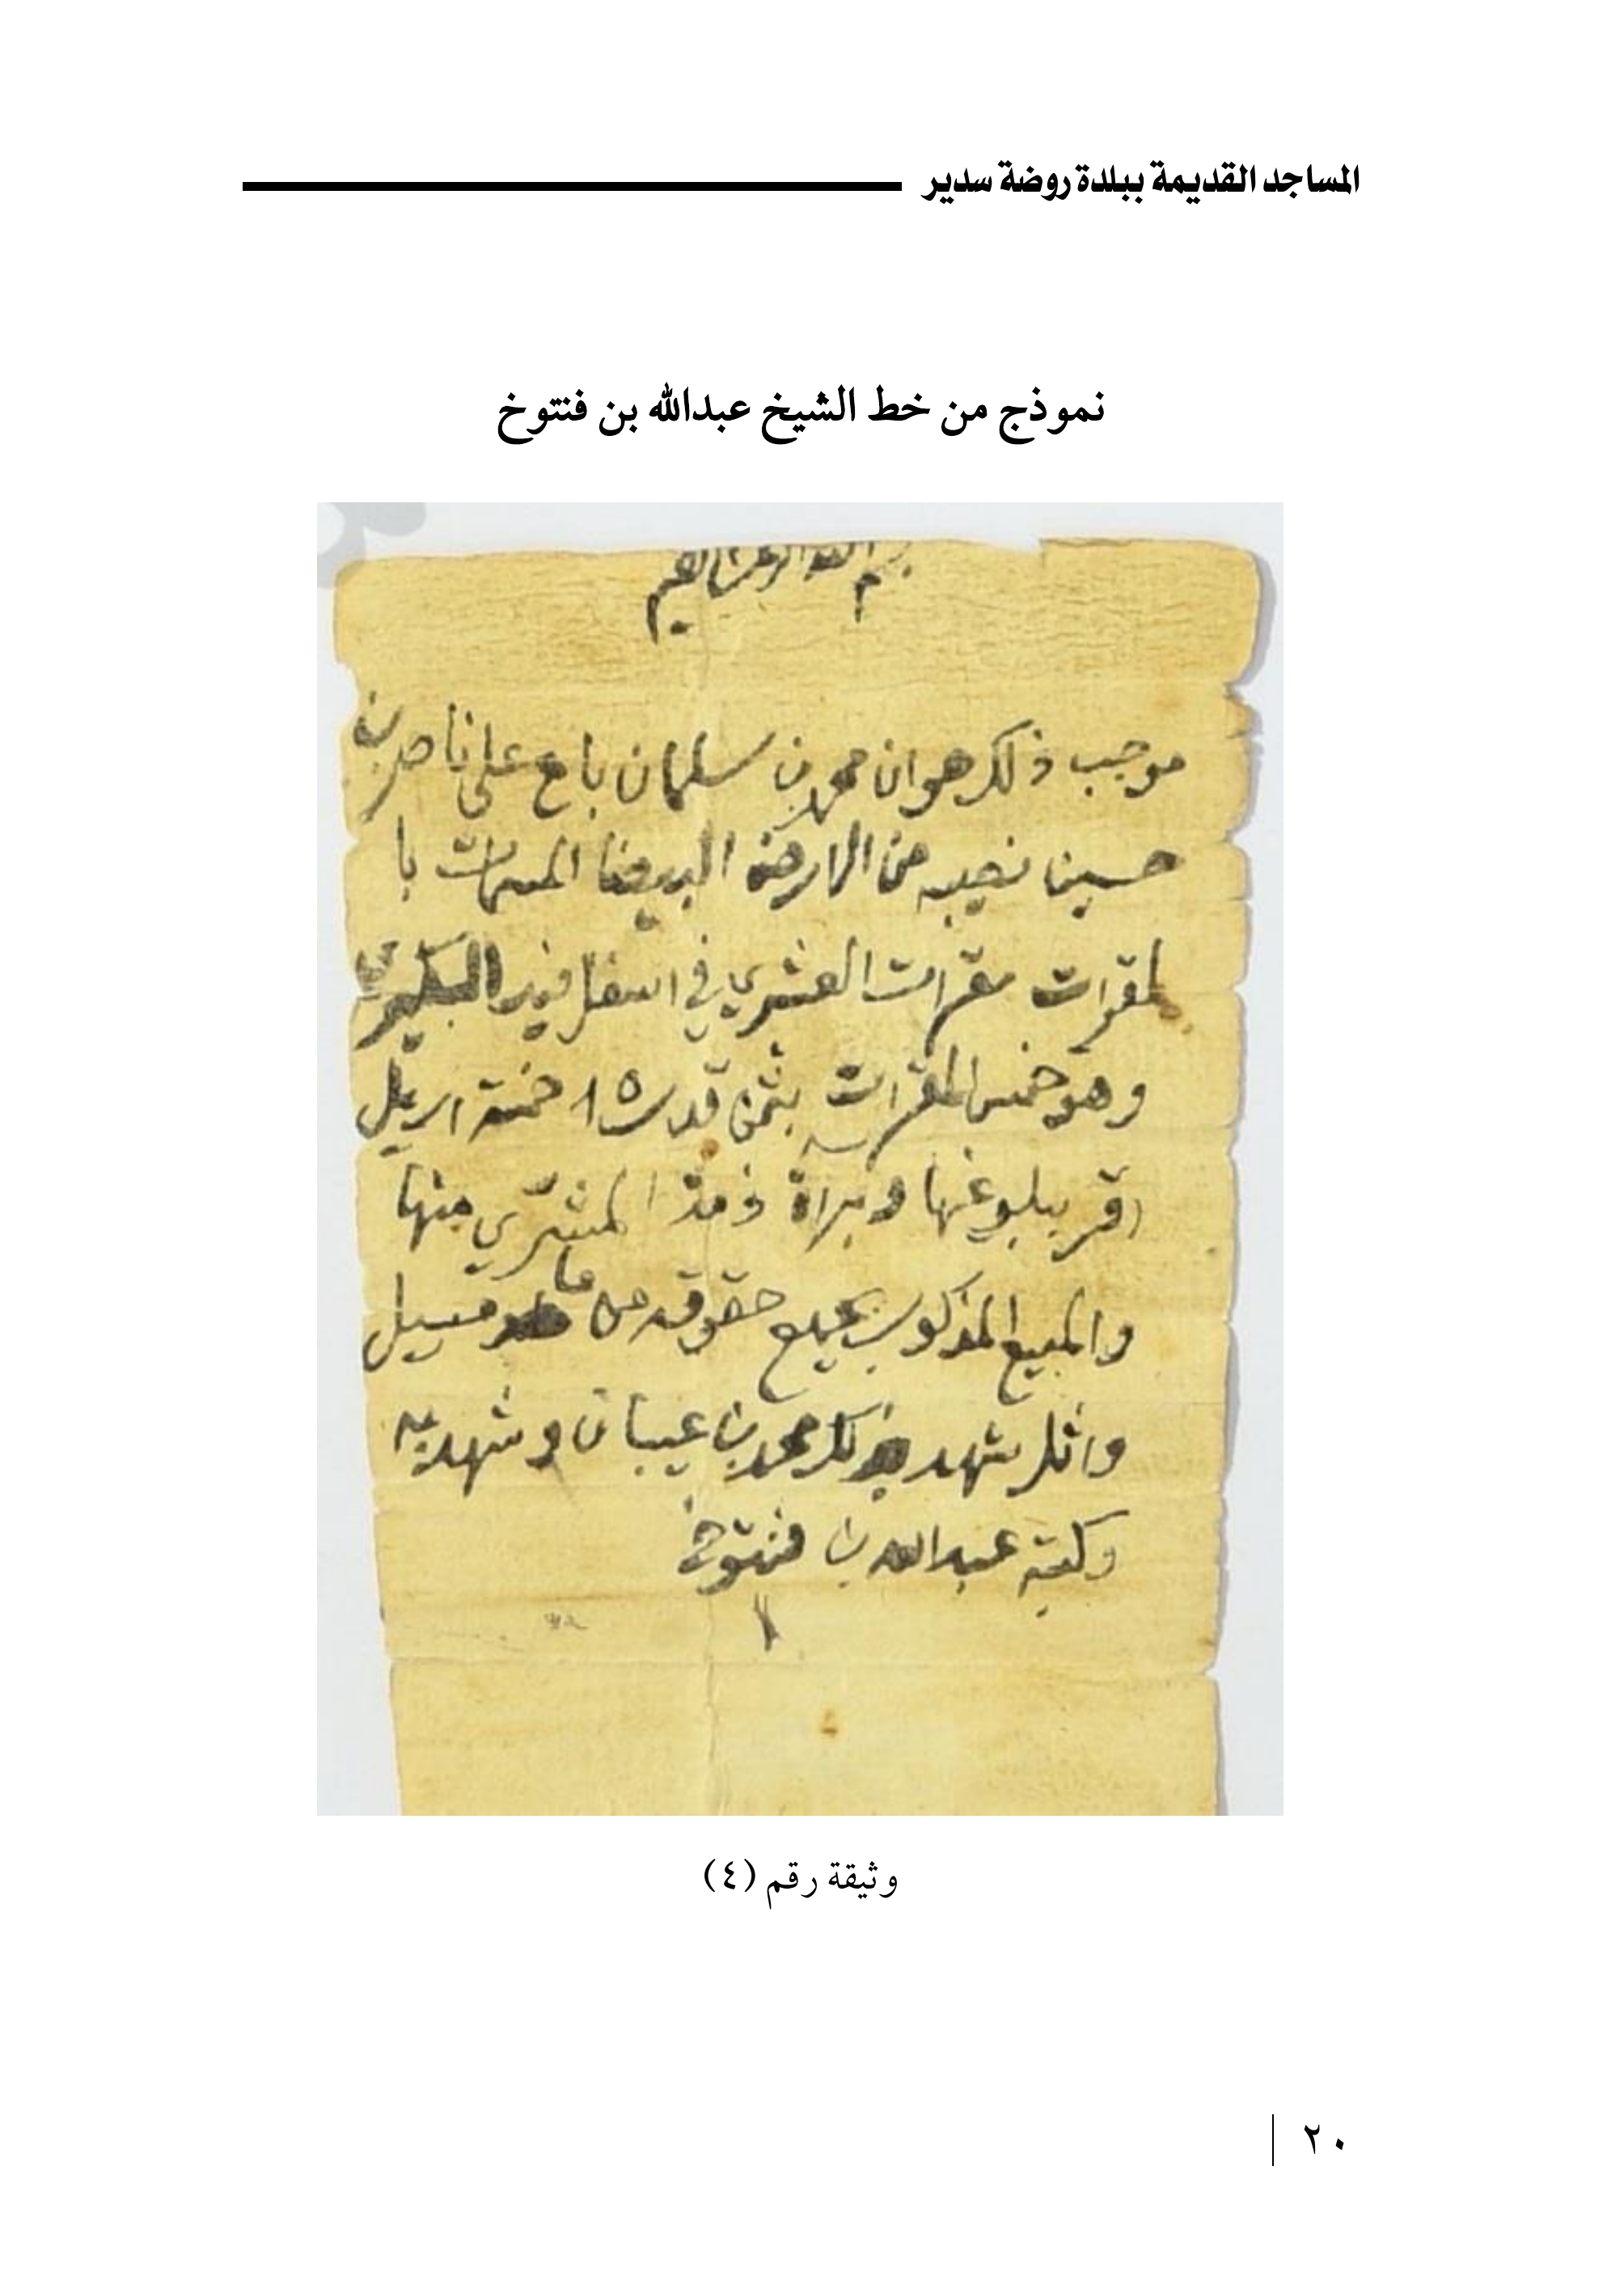 المساجد القديمة ببلدة روضة سدير
نموذج من خط الشيخ عبدالله بن فنتوخ
بسم الله الرحمن الرحيم
موجب ذلك هو ان محمد بن سليمان باع على ناصر بن
حسين نصيبه من الارض البيضا المسمات با
لمقرات مقرات العشري في اسفل فيد
وهو خمس المقرات بثمن قدره خمسة اريل
اقر ببلوغها وبرأة ذمة المشتري منها
والمبيع المذكور بجميع حقوقه من ما ومسيل
واثل شهد بذلك محمد بن عيبان وشهد به
وكتبه عبدالله بن فنتوخ
وثيقة رقم (٤)
٢٠